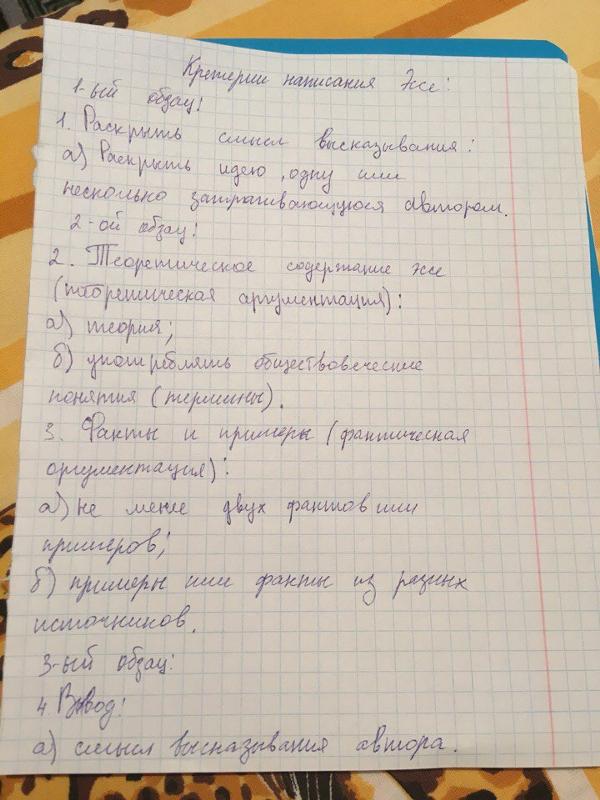 Кретерии написания Эсе:
1-ый обзац:
1. Раскрыть смысл высказывания:
а) Раскрыть идею, одну или
несколько затрагивающуюся автором.
2-ой обзац:
2. Теоретическое содержание эсе
(теоретическая аргументация):
а) теория;
б) употреблять обществоведческие
понятия (термины).
3. Факты и примеры (фактическая
аргументация):
а) не мение двух фактов или
примеров;
б) примеры или факты из разных
источников.
3-ый обзац:
4. Вывод:
а) смысл высказывания автора.